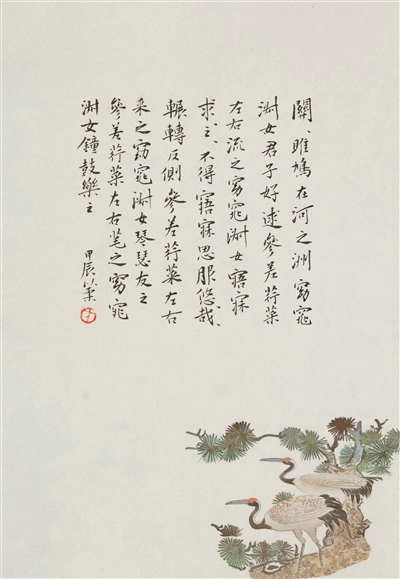 關、雎鳩在河之洲窈窕
淑女君子好逑參差荇菜
左右流之窈窕淑女寤寐
求之、不得寤寐思服悠、哉、
輾轉反側參差荇菜左右
采之窈窕淑女琴瑟友之
參差荇菜左右芼之窈窕
淑女鐘鼓樂之
甲辰